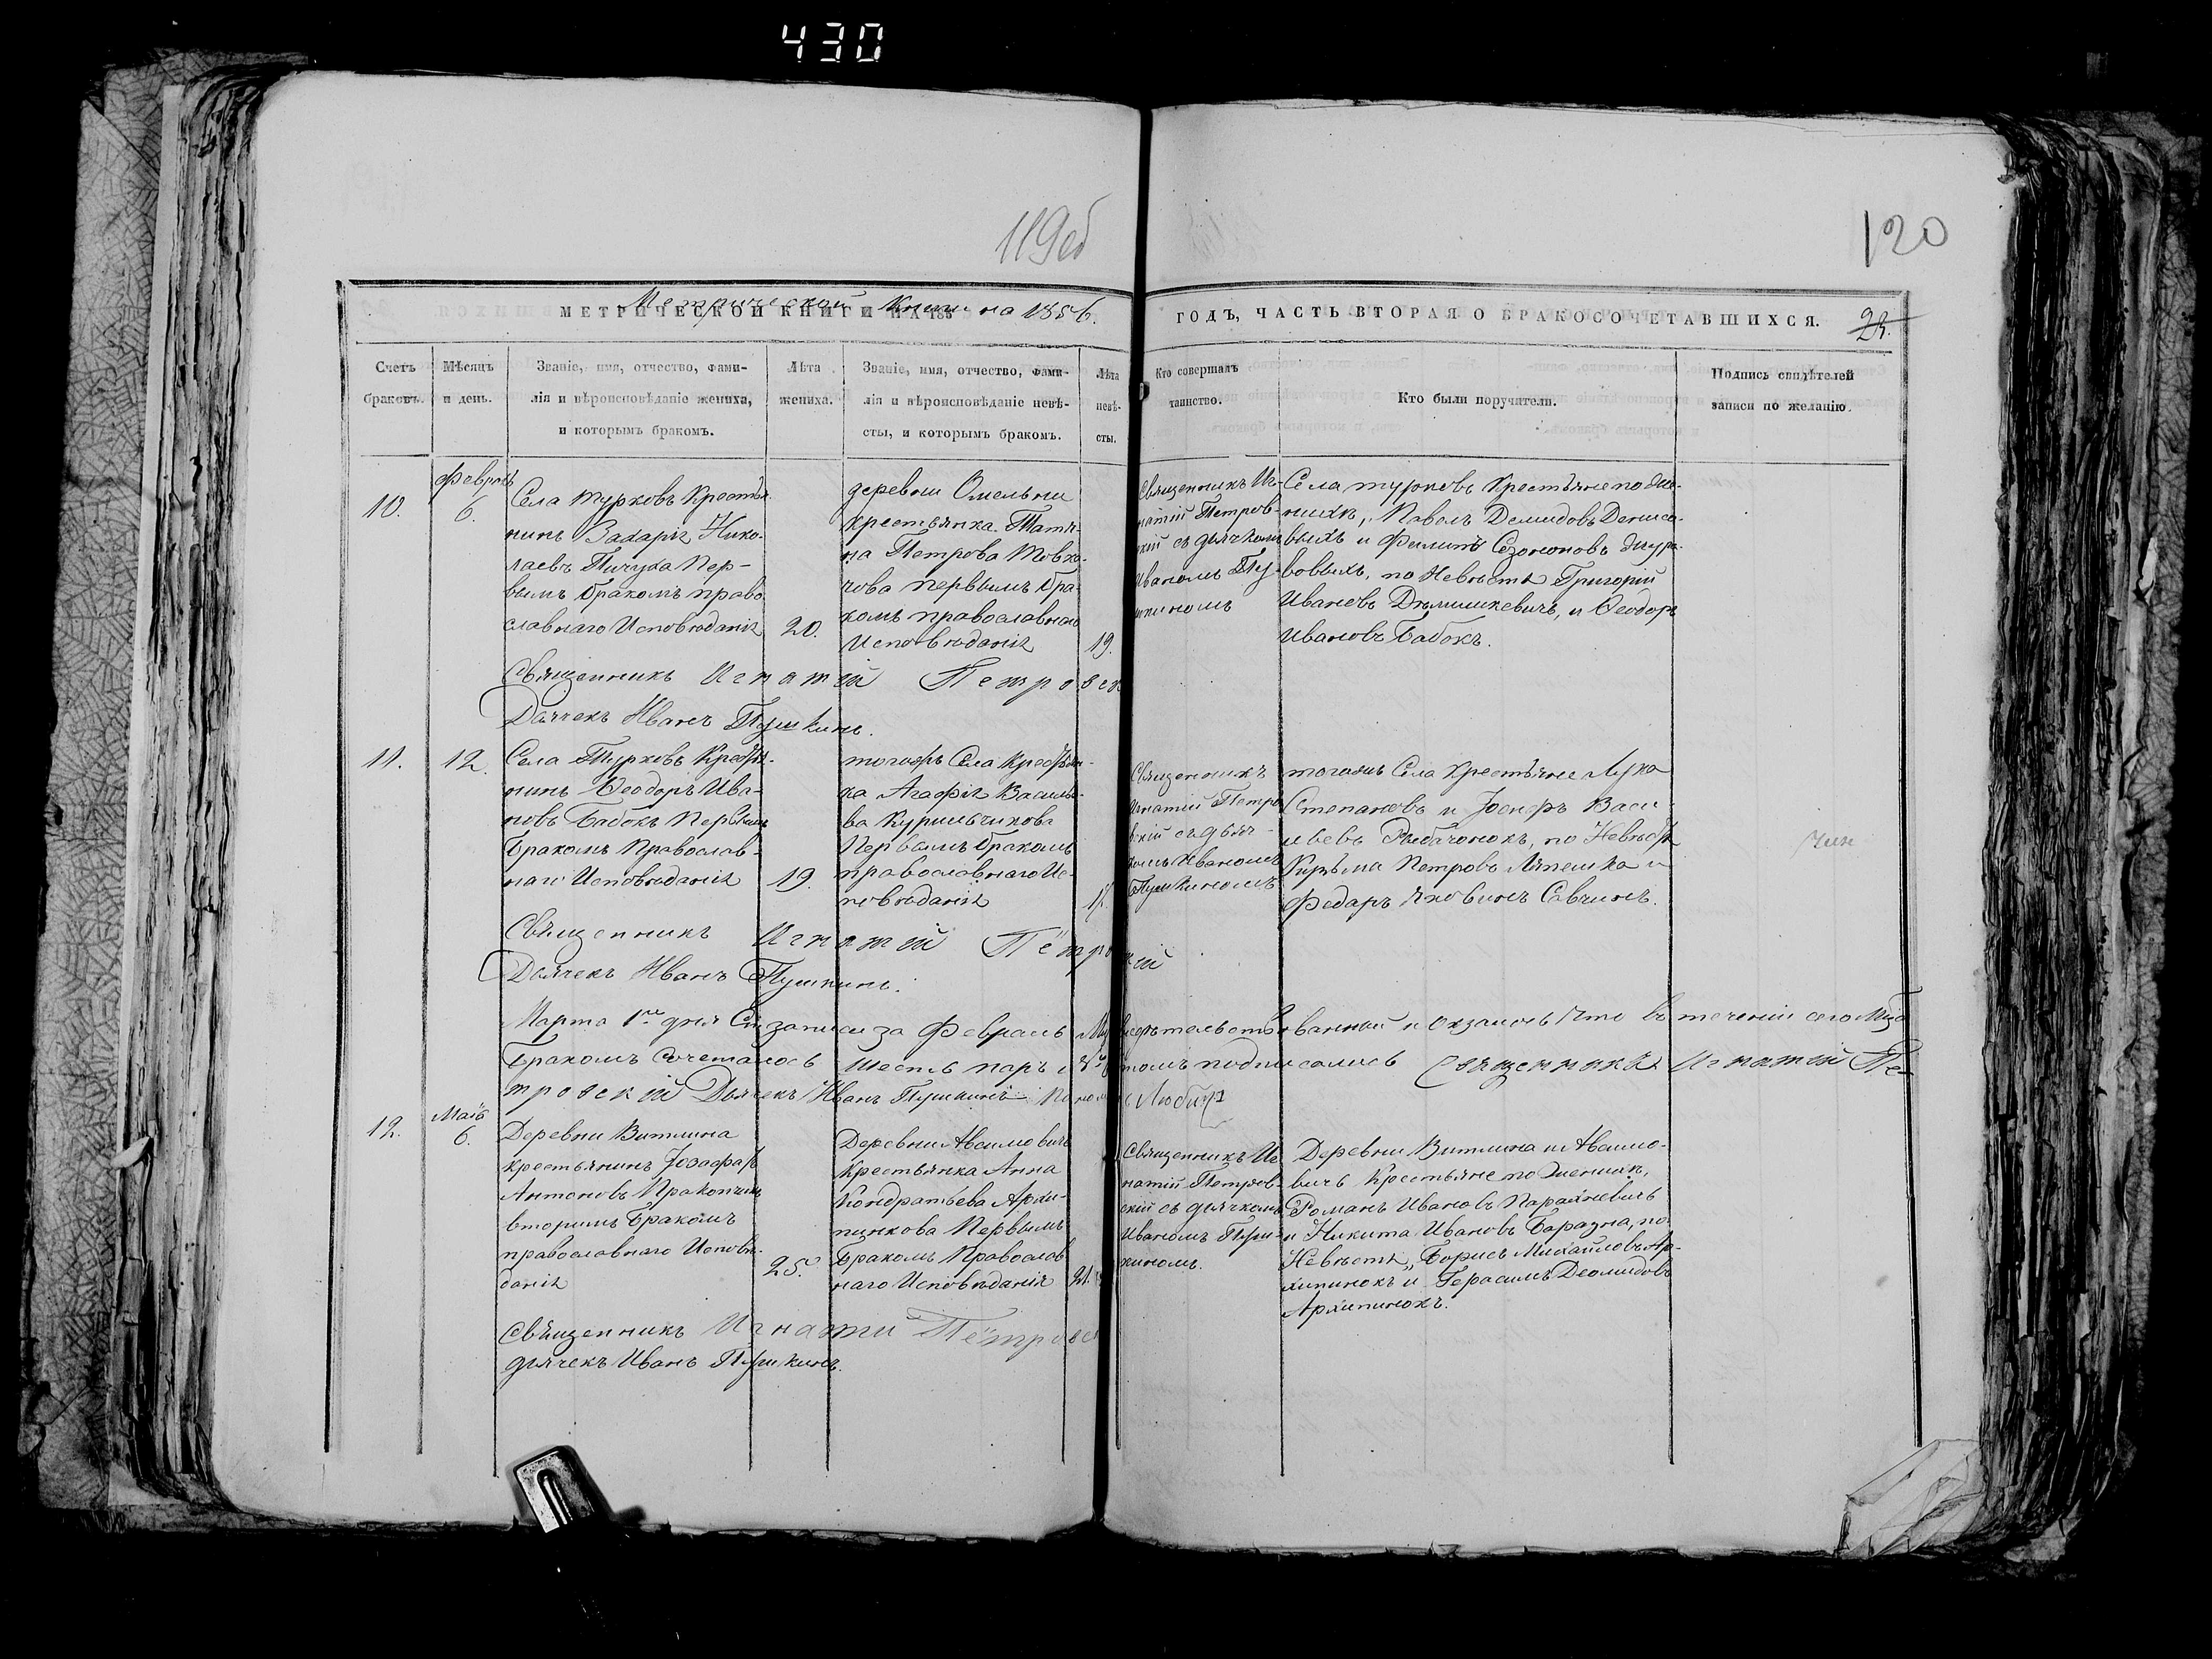 430
119об
120
Метрической Книги на 1856.
МЕТРИЧЕСКОЙ КНИГИ НА 185
ГОДЪ, ЧАСТЬ ВТОРАЯ О БРАКОСОЧЕТАВШИХСЯ.
Счетъ браковъ.
Мѣсяцъ и день.
Званіе, имя, отчество, фами-
лія и вѣроисповѣданіе жениха,
и которымъ бракомъ.
Лѣта жениха.
Званіе, имя, отчество, фами-
лія и вѣроисповѣданіе невѣ-
сты, и которымъ бракомъ.
Лѣта невѣ-
сты.
Кто совершалъ
таинство.
Кто были поручители.
Подпись свидѣтелей
записи по желанію.
10.
Февраль
6.
Села Турковъ Крестья
нинъ Захарія Нико-
лаевъ Пичуха Пер-
вымъ бракомъ право
славнаго Исповѣданія
20.
деревни Омельни
крестьянка Татя-
на Петрова Товка-
чова первымъ бра-
комъ православнаго
Исповѣданія
19.
Священникъ Иг-
натій Петров-
скій съ дьячкомъ
Иваномъ Пу-
шкиномъ
Села турковъ Крестьяне по Же-
нихѣ, Павелъ Демидовъ Денисо-
выхъ и Филипъ
по Невѣстѣ Григорій
Ивановъ и Ѳеодоръ
Ивановъ Бабокъ.
Священникъ Игнатій Петровск
Дьячекъ Иванъ Пушкинъ.
11.
12.
Села Турковъ Крестья-
нинъ Ѳеодоръ Ива-
новъ Бабокъ Первымъ
Бракомъ Православ-
наго Исповѣданія
19.
тогожъ Села Крестьян-
ка Агафія Василье-
ва Курильчикова
Первымъ бракомъ
православнаго Ис-
повѣданія
Священникъ
Игнатій Петро
вскій съ дьяч-
комъ Иваномъ
Пушкиномъ
тогожъ Села Крестьяне Лука
Степановъ и Іосифъ Васи-
льевъ Рыбачонокъ, по Невѣстѣ
Кузьма Петровъ Ляпешка и
Федаръ Яковинъ Савчинъ.
Священникъ Игнатій Петро кій
Дьячекъ Иванъ Пушкинъ.
Марта 1го дня Сіи записи за Февраль видѣтельствованный и Оказалось что въ теченіи сего
Бракомъ Сочеталось шесть паръ томъ подписались Священникъ Игнатій Пе-
тровскій Дьячекъ Иванъ Пушкинъ
12.
Маія
6.
Деревни Витлина
крестьянинъ Іосафатъ
Антоновъ Пракопчикъ
вторымъ Бракомъ
православнаго Исповѣ-
данія
25.
Деревни
Крестьянка Анна
Кондратьева Архи-
пинкова Первымъ
Бракомъ Православ
наго Исповѣданія
21.
Священникъ Иг
натій Петров-
скій съ дьячкомъ
Иваномъ Пуш-
киномъ.
Деревни Витлина и
вичъ Крестьяне по Женихѣ,
Романъ Ивановъ
и Никита Ивановъ Барадна, по
Невѣстѣ, Борисъ Михайловъ Ар-
хипинокъ и Герасимъ Деомидовъ
Архипинокъ.
Священникъ Игнатій Петровс
дьячекъ Иванъ Пушкинъ.